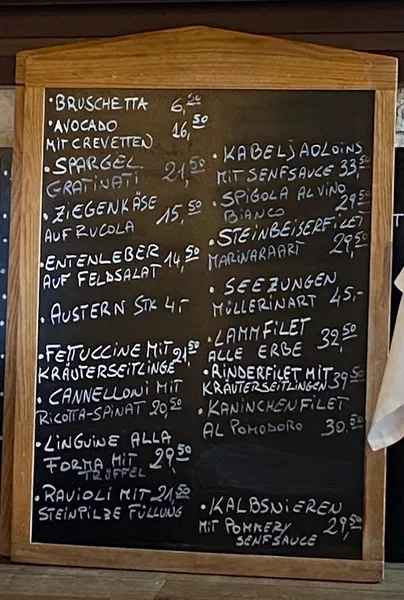 • BRUSCHETTA 6,50
• AVOCADO 16,50
MIT CREVETTEN
• SPARGEL 21,50
GRATINATI
• ZIEGENKÄSE 15,50
AUF RUCOLA
• ENTENLEBER 14,50
AUF FELDSALAT
• AUSTERN STK 4,-
• FETTUCCINE MIT 21,50
KRÄUTERSEITLINGE
• CANNELLONI MIT
RICOTTA-SPINAT 20,50
• LINGUINE ALLA
FORMA MIT 29,50
TRÜFFEL
• RAVIOLI MIT 21,50
STEINPILZE FÜLLUNG
• KABELJAOLOINS
MIT SENFSAUCE 33,50
• SPIGOLA AL VINO
BIANCO 29,50
• STEINBEISERFILET
MARINARAART 29,50
• SEEZUNGEN
MÜLLERINART 45,-
• LAMMFILET 32,50
ALLE ERBE
• RINDERFILET MIT
KRÄUTERSEITLINGEN 39,50
• KANINCHENFILET
AL POMODORO 30,50
• KALBSNIEREN
MIT POMMERY 29,50
SENFSAUCE